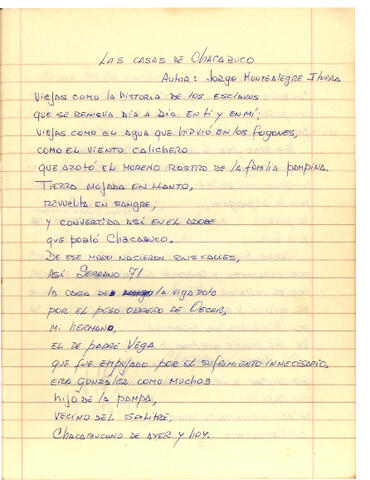 LAS CASAS DE CHACABUCO
Autor: Jorge Montealegre Iturra
Viejas como la historia de los esclavos
que se renueva día a día en ti y en mí;
viejas como el agua que hirvió en los fogones,
como el viento calichero
que azotó el moreno rostro de la familia pampina.
Tierra mojada en llanto,
revuelta en sangre,
y convertida así en el adobe
que pobló Chacabuco.
De ese modo nacieron sus calles,
Así Serrano 71
la casa de la viga
por el peso obrero de Oscar,
mi hermano,
el de padre Vega
que fue empujado por el sufrimiento innecesario,
era González como muchos
hijo de la pampa,
vecino del salitre,
Chacabucano de ayer y hoy.